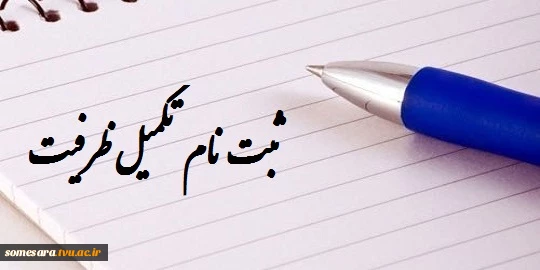 ثبت نام تکمیل ظرفیت
somesara.tvu.ac.ir